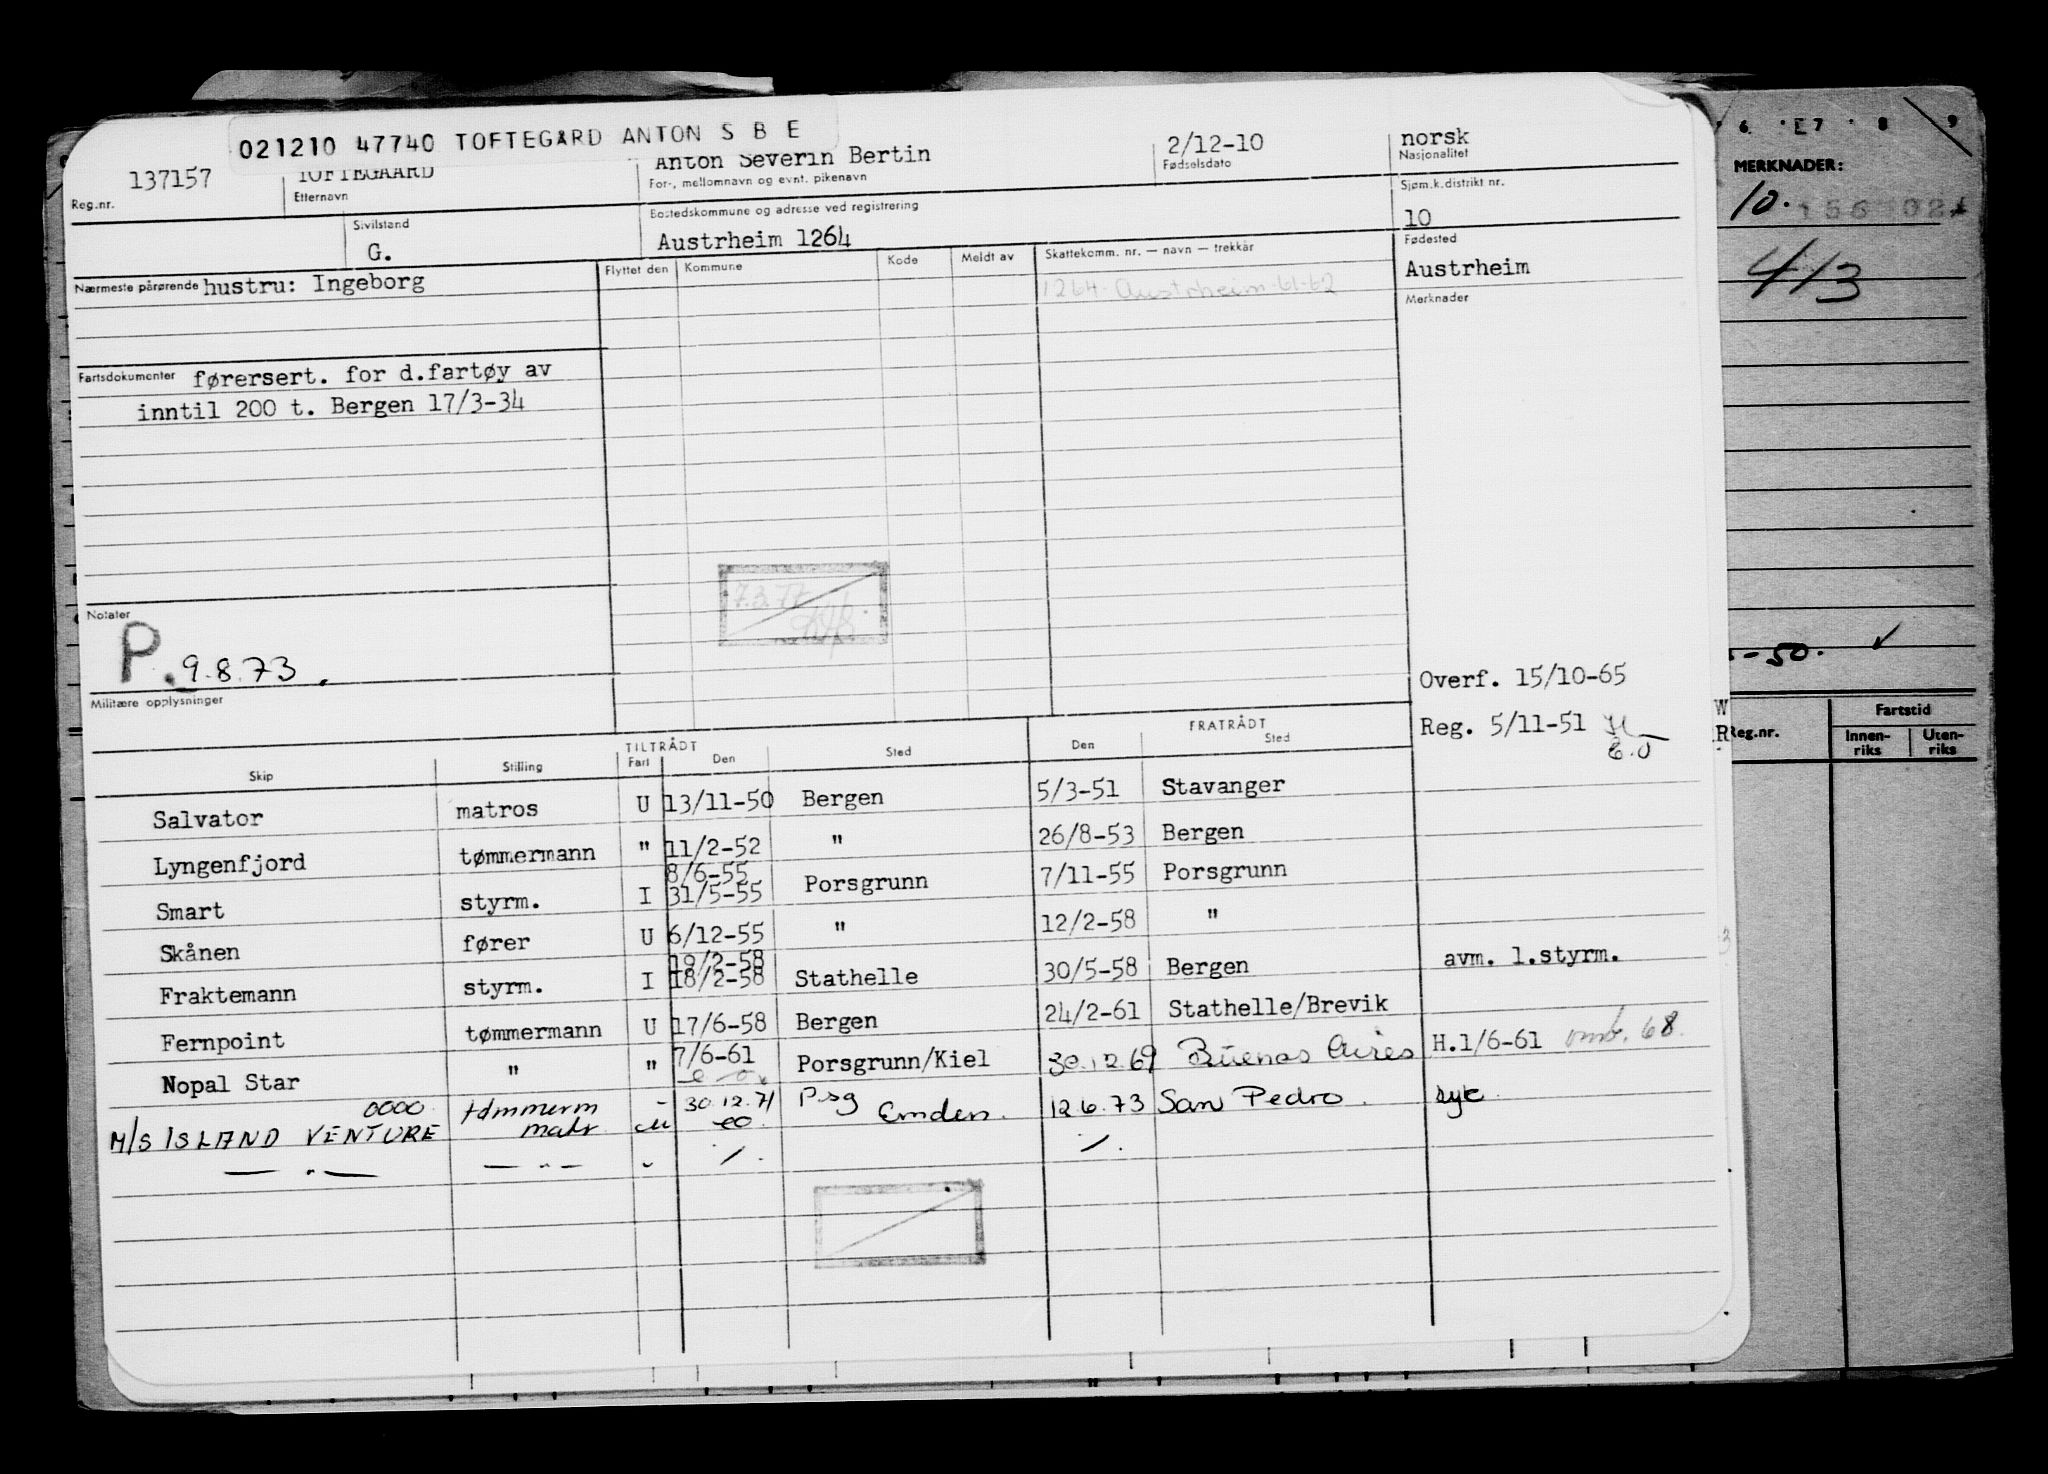 021210 47740 TOFTEGARD ANTON S B E
137157 TOFTEGAARD Anton Severin Bertin 2/12-10 norsk
Reg.nr. Etternavn For-, mellomnavn og evnt. pikenavn Fødselsdato Nasjonalitet
Sivilstand Bostedskommune og adresse ved registrering Sjøm.k.distrikt nr.
G. Austrheim 1264 10
Nærmeste pårørende hustru: Ingeborg
Flyttet den Kommune Kode Meldt av Skattekomm. nr. — navn — trekkår Fødested
1264 Austrheim-61-62 Austrheim
Merknader
Fartsdokumenter førersert. for d.fartøy av
inntil 200 t. Bergen 17/3-34
Notater
P. 9.8.73.
7.3.77
Militære opplysninger
Overf. 15/10-65
Reg. 5/11-51
TILTRÅDT FRATRÅDT
Skip Stilling Fart Den Sted Den Sted
Salvator matros U 13/11-50 Bergen 5/3-51 Stavanger
Lyngenfjord tømmermann " 11/2-52 " 26/8-53 Bergen
8/6-55
Smart styrm. I 31/5-55 Porsgrunn 7/11-55 Porsgrunn
Skånen fører U 6/12-55 " 12/2-58 "
19/2-58
Fraktemann styrm. I 18/2-58 Stathelle 30/5-58 Bergen avm. 1.styrm.
Fernpoint tømmermann U 17/6-58 Bergen 24/2-61 Stathelle/Brevik
Nopal Star " " 7/6-61 Porsgrunn/Kiel 30.12.69 Buenos Aires H.1/6-61 omb. 68.
0000 tømmerm - 30.12.71 Psg
M/S ISLAND VENTURE matr U eo. Emden. 12.6.73 San Pedro. syk.
— " — — " — - /. /.
6 E7 8 9
MERKNADER:
10. 156 102
413
-50. ✓
Reg.nr. Fartstid
Innen-
riks
Uten-
riks